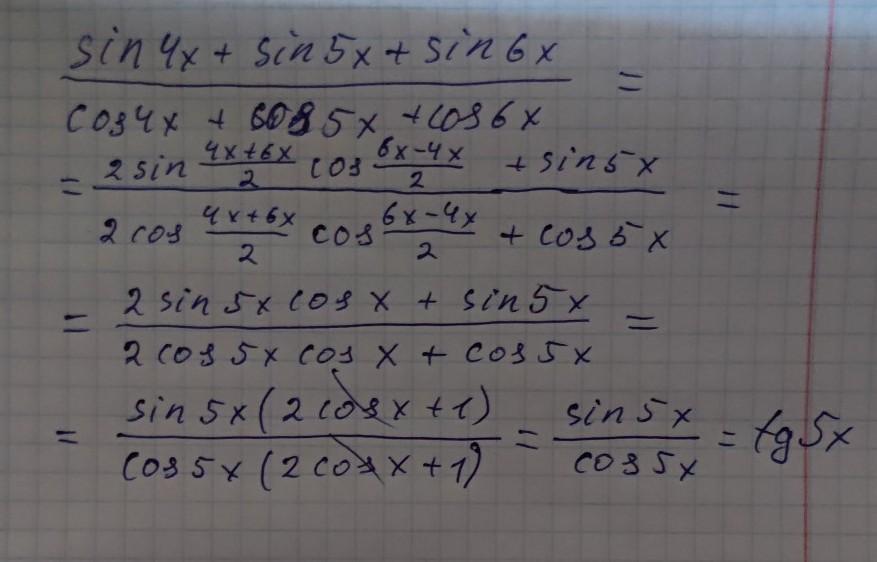 sin4x + sin5x + sin6x / cos4x + cos5x + cos6x =
= 2 sin (4x+6x)/2 cos (6x-4x)/2 + sin5x / 2 cos (4x+6x)/2 cos (6x-4x)/2 + cos5x =
= 2 sin5x cos x + sin5x / 2 cos5x cos x + cos5x =
= sin5x(2cosx+1) / cos5x(2cosx+1) = sin5x / cos5x = tg5x